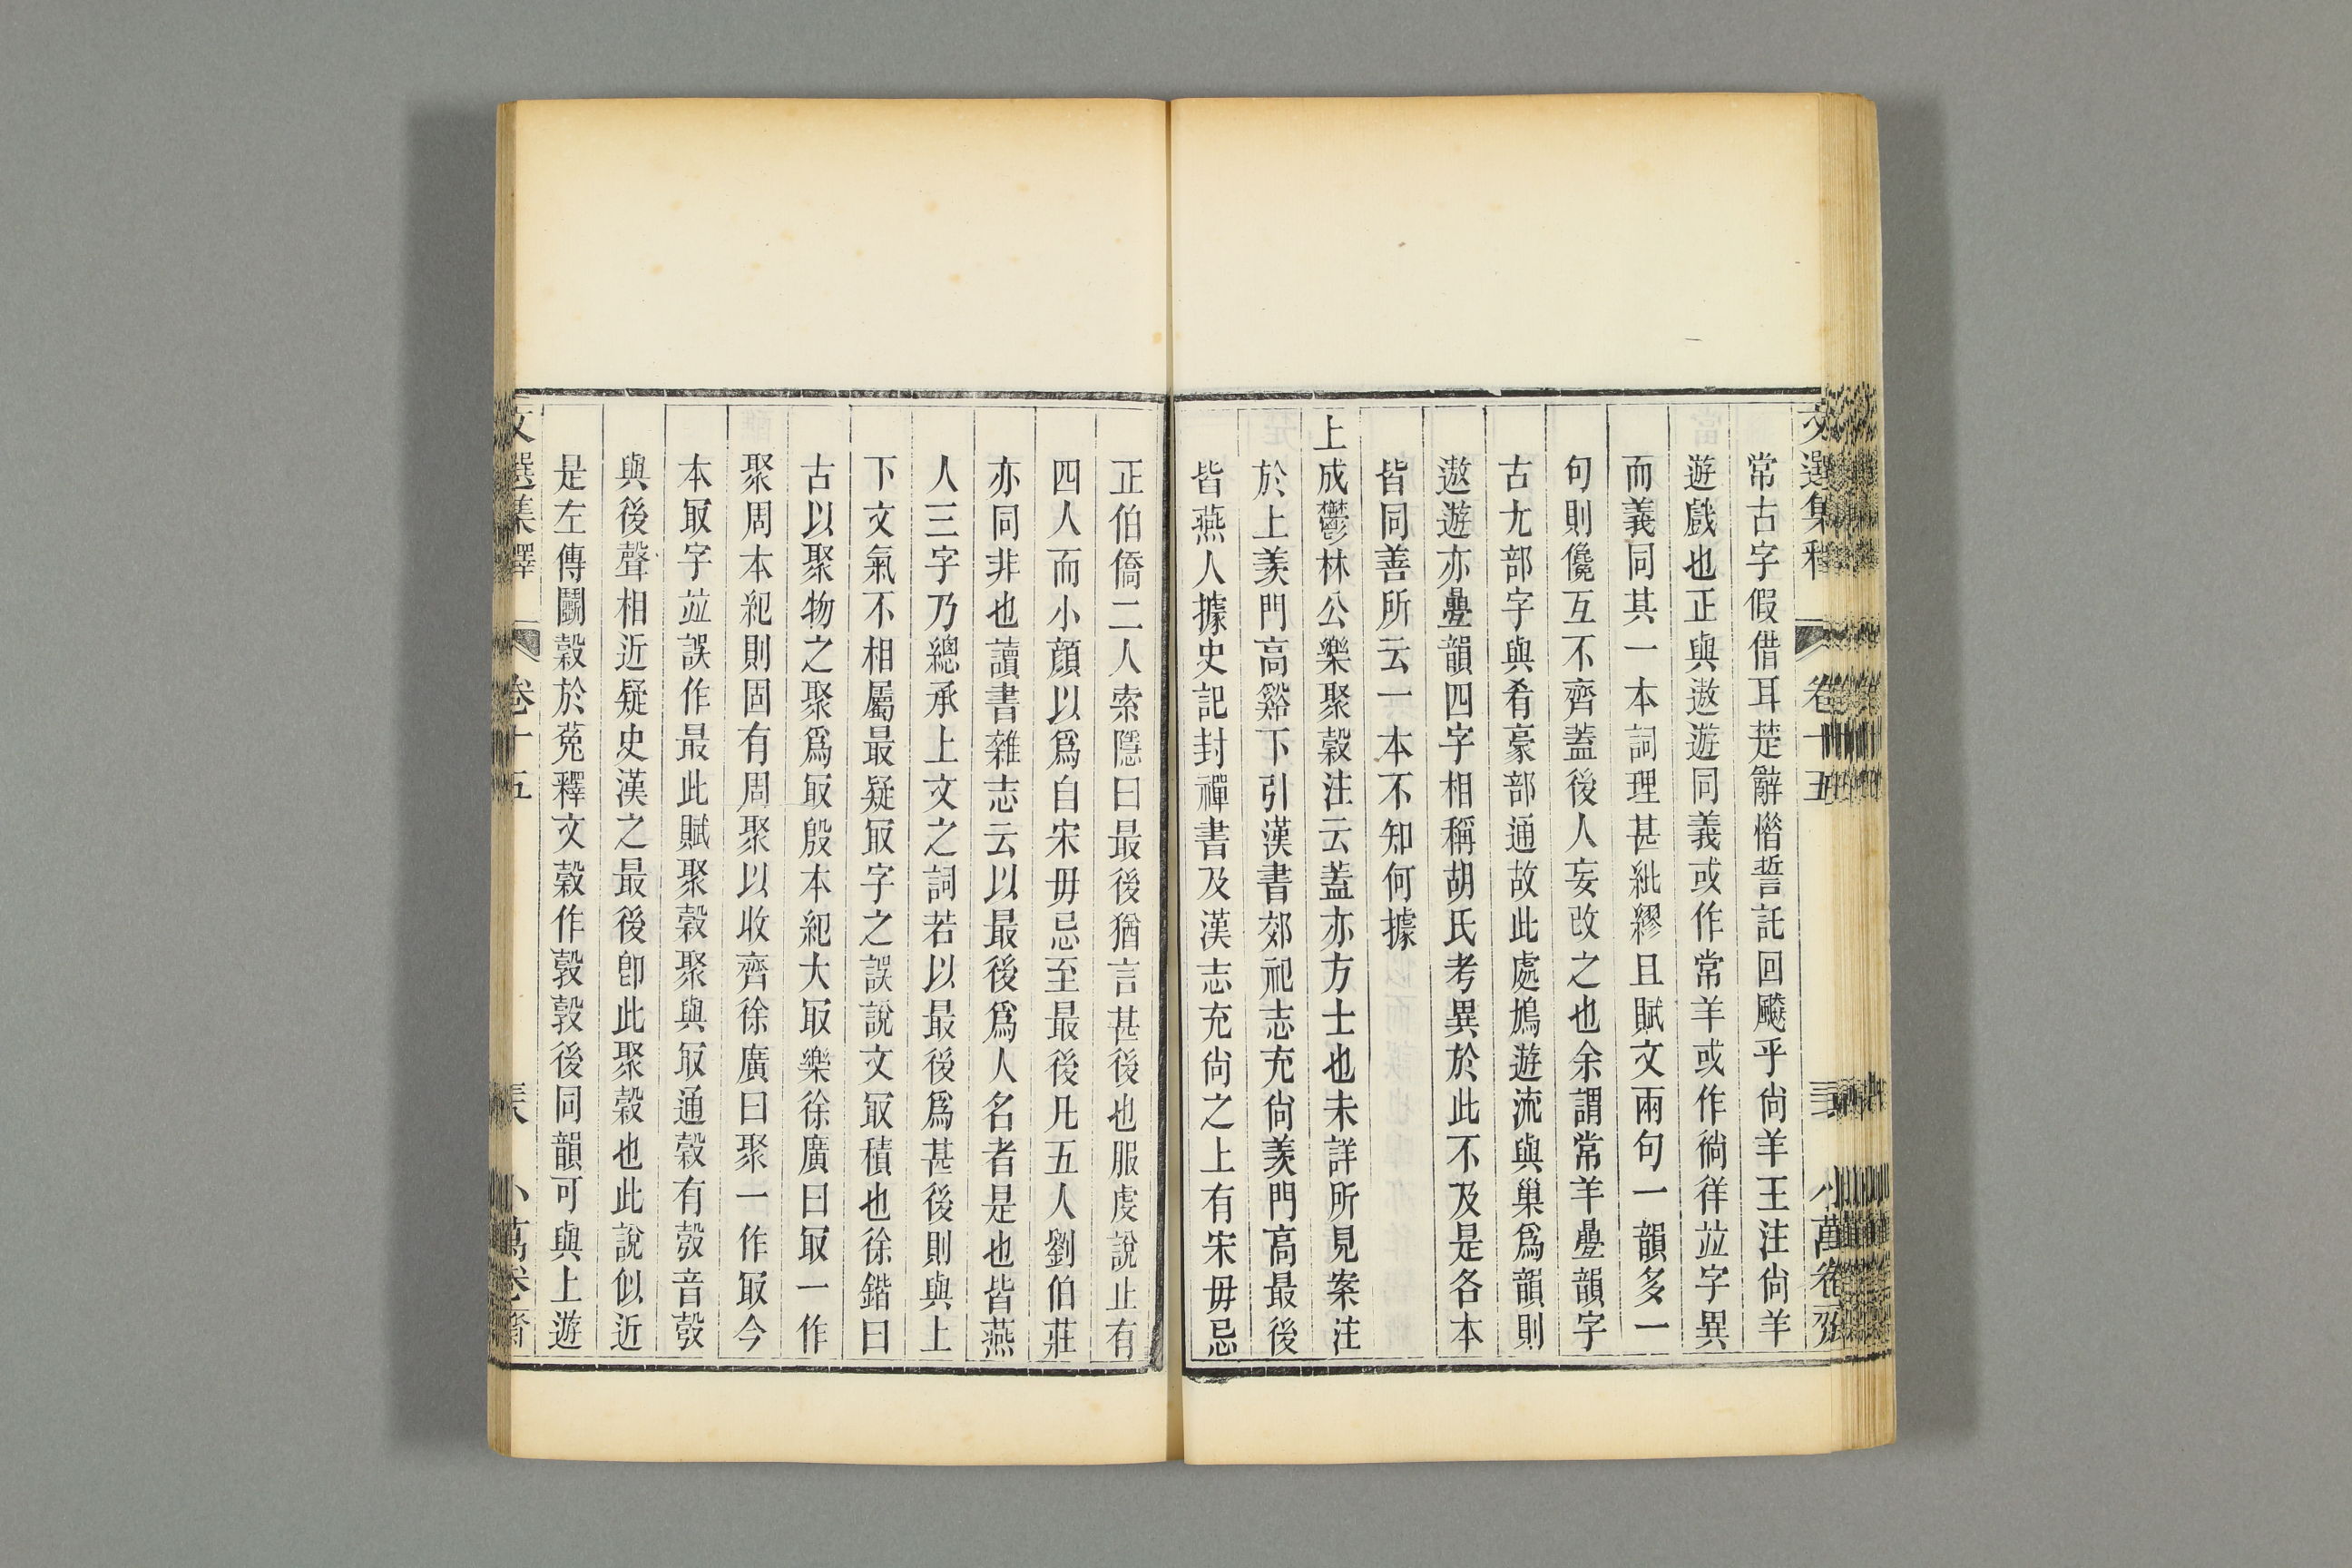 常古字假借耳楚辭惜誓託回飇乎尙羊王注尙羊
遊戲也正與遨遊同義或作常羊或作徜徉竝字異
而義同其一本詞理甚紕繆且賦文兩句一韻多一
句則儳互不齊蓋後人妄改之也余謂常羊疊韻字
古尢部字與肴豪部通故此處鳩遊流與巢爲韻則
遨遊亦疊韻四字相稱胡氏考異於此不及是各本
皆同善所云一本不知何據
上成鬱林公樂聚榖注云蓋亦方士也未詳所見案注
於上羨門高谿下引漢書郊祀志充尙羨門高最後
皆燕人據史記封禪書及漢志充尙之上有宋毋忌
正伯僑二人索隱曰最後猶言甚後也服虔說止有
四人而小顔以爲自宋毋忌至最後凡五人劉伯莊
亦同非也讀書雜志云以最後爲人名者是也皆燕
人三字乃總承上文之詞若以最後爲甚後則與上
下文氣不相屬最疑冣字之誤說文冣積也徐鍇曰
古以聚物之聚爲冣殷本紀大冣樂徐廣曰冣一作
聚周本紀則固有周聚以收齊徐廣曰聚一作冣今
本冣字竝誤作最此賦聚榖聚與冣通榖有彀音彀
與後聲相近疑史漢之最後卽此聚榖也此說似近
是左傳鬭榖於菟釋文榖作㝅㝅後同韻可與上遊
文選集釋 卷十五 小萬卷齋